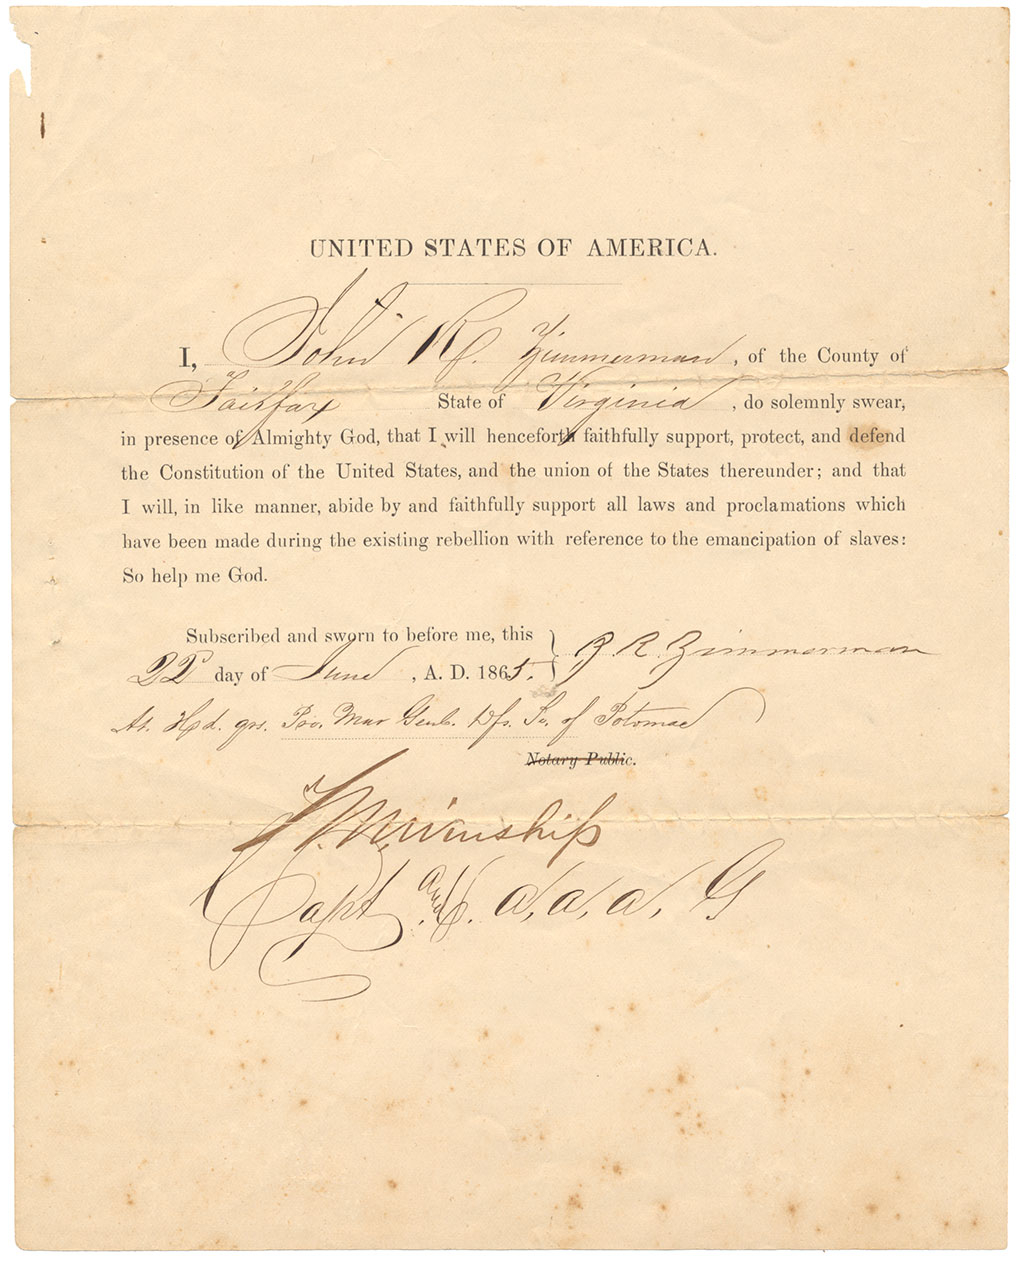 UNITED STATES OF AMERICA.
I, John R. Zimmerman, of the County of
Fairfax State of Virginia, do solemnly swear,
in presence of Almighty God, that I will henceforth faithfully support, protect, and defend
the Constitution of the United States, and the union of the States thereunder; and that
I will, in like manner, abide by and faithfully support all laws and proclamations which
have been made during the existing rebellion with reference to the emancipation of slaves:
So help me God.
Subscribed and sworn to before me, this
22 day of June, A. D. 1865. } J. R. Zimmerman
At Hd. qrs. Pro. Mar Genl. Dfs. So. of Potomac
Notary Public.
Winship
Capt and A. A. A. G